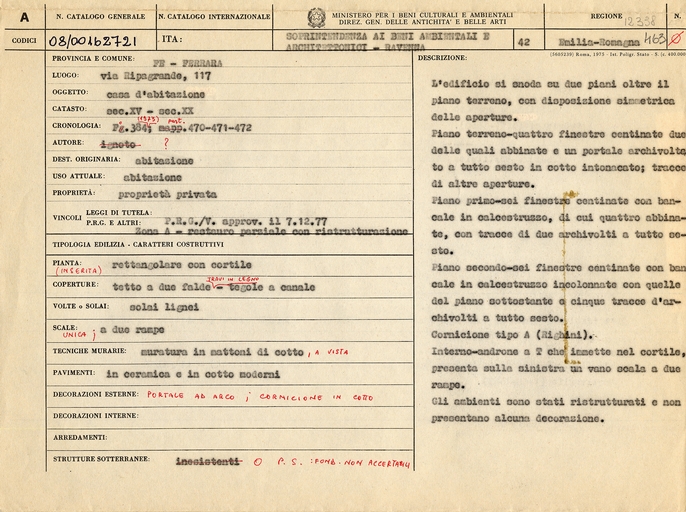 A
N. CATALOGO GENERALE
N. CATALOGO INTERNAZIONALE
MINISTERO PER I BENI CULTURALI E AMBIENTALI
DIREZ. GEN. DELLE ANTICHITA' E BELLE ARTI
REGIONE 12398
N.
CODICI
08/00162721
ITA:
SOPRINTENDENZA AI BENI AMBIENTALI E
ARCHITETTONICI - RAVENNA
42
Emilia-Romagna 463
(5605239) Roma, 1975 - Ist. Poligr. Stato - S. (c. 400.000)
PROVINCIA E COMUNE: FE - FERRARA
LUOGO: via Ripagrande, 117
OGGETTO: casa d'abitazione
CATASTO: sec.XV - sec.XX
(1973) part.
CRONOLOGIA: Fg.384; mapp.470-471-472
AUTORE: ignoto ?
DEST. ORIGINARIA: abitazione
USO ATTUALE: abitazione
PROPRIETÀ: proprietà privata
VINCOLI
LEGGI DI TUTELA:
P.R.G. E ALTRI: P.R.G./V. approv. il 7.12.77
Zona A - restauro parziale con ristrutturazione
TIPOLOGIA EDILIZIA - CARATTERI COSTRUTTIVI
PIANTA: rettangolare con cortile
(INSERITA)
TRAVI IN LEGNO
COPERTURE: tetto a due falde - tegole a canale
VOLTE o SOLAI: solai lignei
SCALE: a due rampe
UNICA;
TECNICHE MURARIE: muratura in mattoni di cotto, A VISTA
PAVIMENTI: in ceramica e in cotto moderni
DECORAZIONI ESTERNE: PORTALE AD ARCO; CORNICIONE IN COTTO
DECORAZIONI INTERNE:
ARREDAMENTI:
STRUTTURE SOTTERRANEE: inesistenti O P.S. : FOND. NON ACCERTABILI
DESCRIZIONE:
L'edificio si snoda su due piani oltre il
piano terreno, con disposizione simmetrica
delle aperture.
Piano terreno-quattro finestre centinate due
delle quali abbinate e un portale archivolta
to a tutto sesto in cotto intonacato; tracce
di altre aperture.
Piano primo-sei finestre centinate con ban-
cale in calcestruzzo, di cui quattro abbina-
te, con tracce di due archivolti a tutto se-
sto.
Piano secondo-sei finestre centinate con ban
cale in calcestruzzo incolonnate con quelle
del piano sottostante e cinque tracce d'ar-
chivolti a tutto sesto.
Cornicione tipo A (Righini).
Interno-androne a T che immette nel cortile,
presenta sulla sinistra un vano scala a due
rampe.
Gli ambienti sono stati ristrutturati e non
presentano alcuna decorazione.